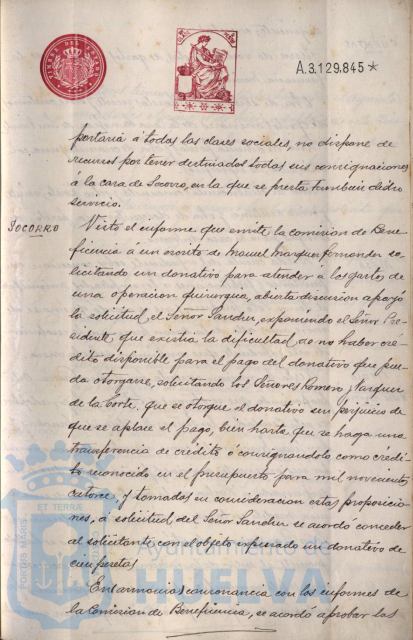 TIMBRE DEL ESTADO
A.3.129.845*
portaria á todas las clases sociales, no dispone de
recursos por tener destinados todas sus consignaciones
á la casa de Socorro, en la que se presta tambien dicho
servicio.
SOCORRO
Visto el informe que emite la Comision de Bene-
ficencia á un escrito de Manuel Marquez Fernandez so-
licitando un donativo para atender a los gastos de
una operacion quirurgica, abierta discusion apoyó
la solicitud el Señor Sanchez, exponiendo el Señor Pre-
sidente que existia la dificultad de no haber cre-
dito disponible para el pago del donativo que pue-
da otorgarse, solicitando los Señores Romero y Vazquez
de la Corte, que se otorgue el donativo sin perjuicio de
que se aplace el pago, bien hasta que se haga una
transferencia de crédito ó consignandolo como crédi-
to reconocido en el presupuesto para mil novecientos
catorce, y tomadas en consideracion estas proposicio-
nes, á solicitud del Señor Sanchez se acordó conceder
al solicitante con el objeto expresado un donativo de
cien pesetas
En consonancia con los informes de
la Comision de Beneficencia, se acordó aprobar las
ET TERRAE
PORTUS MARIS
Ayuntamiento de
HUELVA